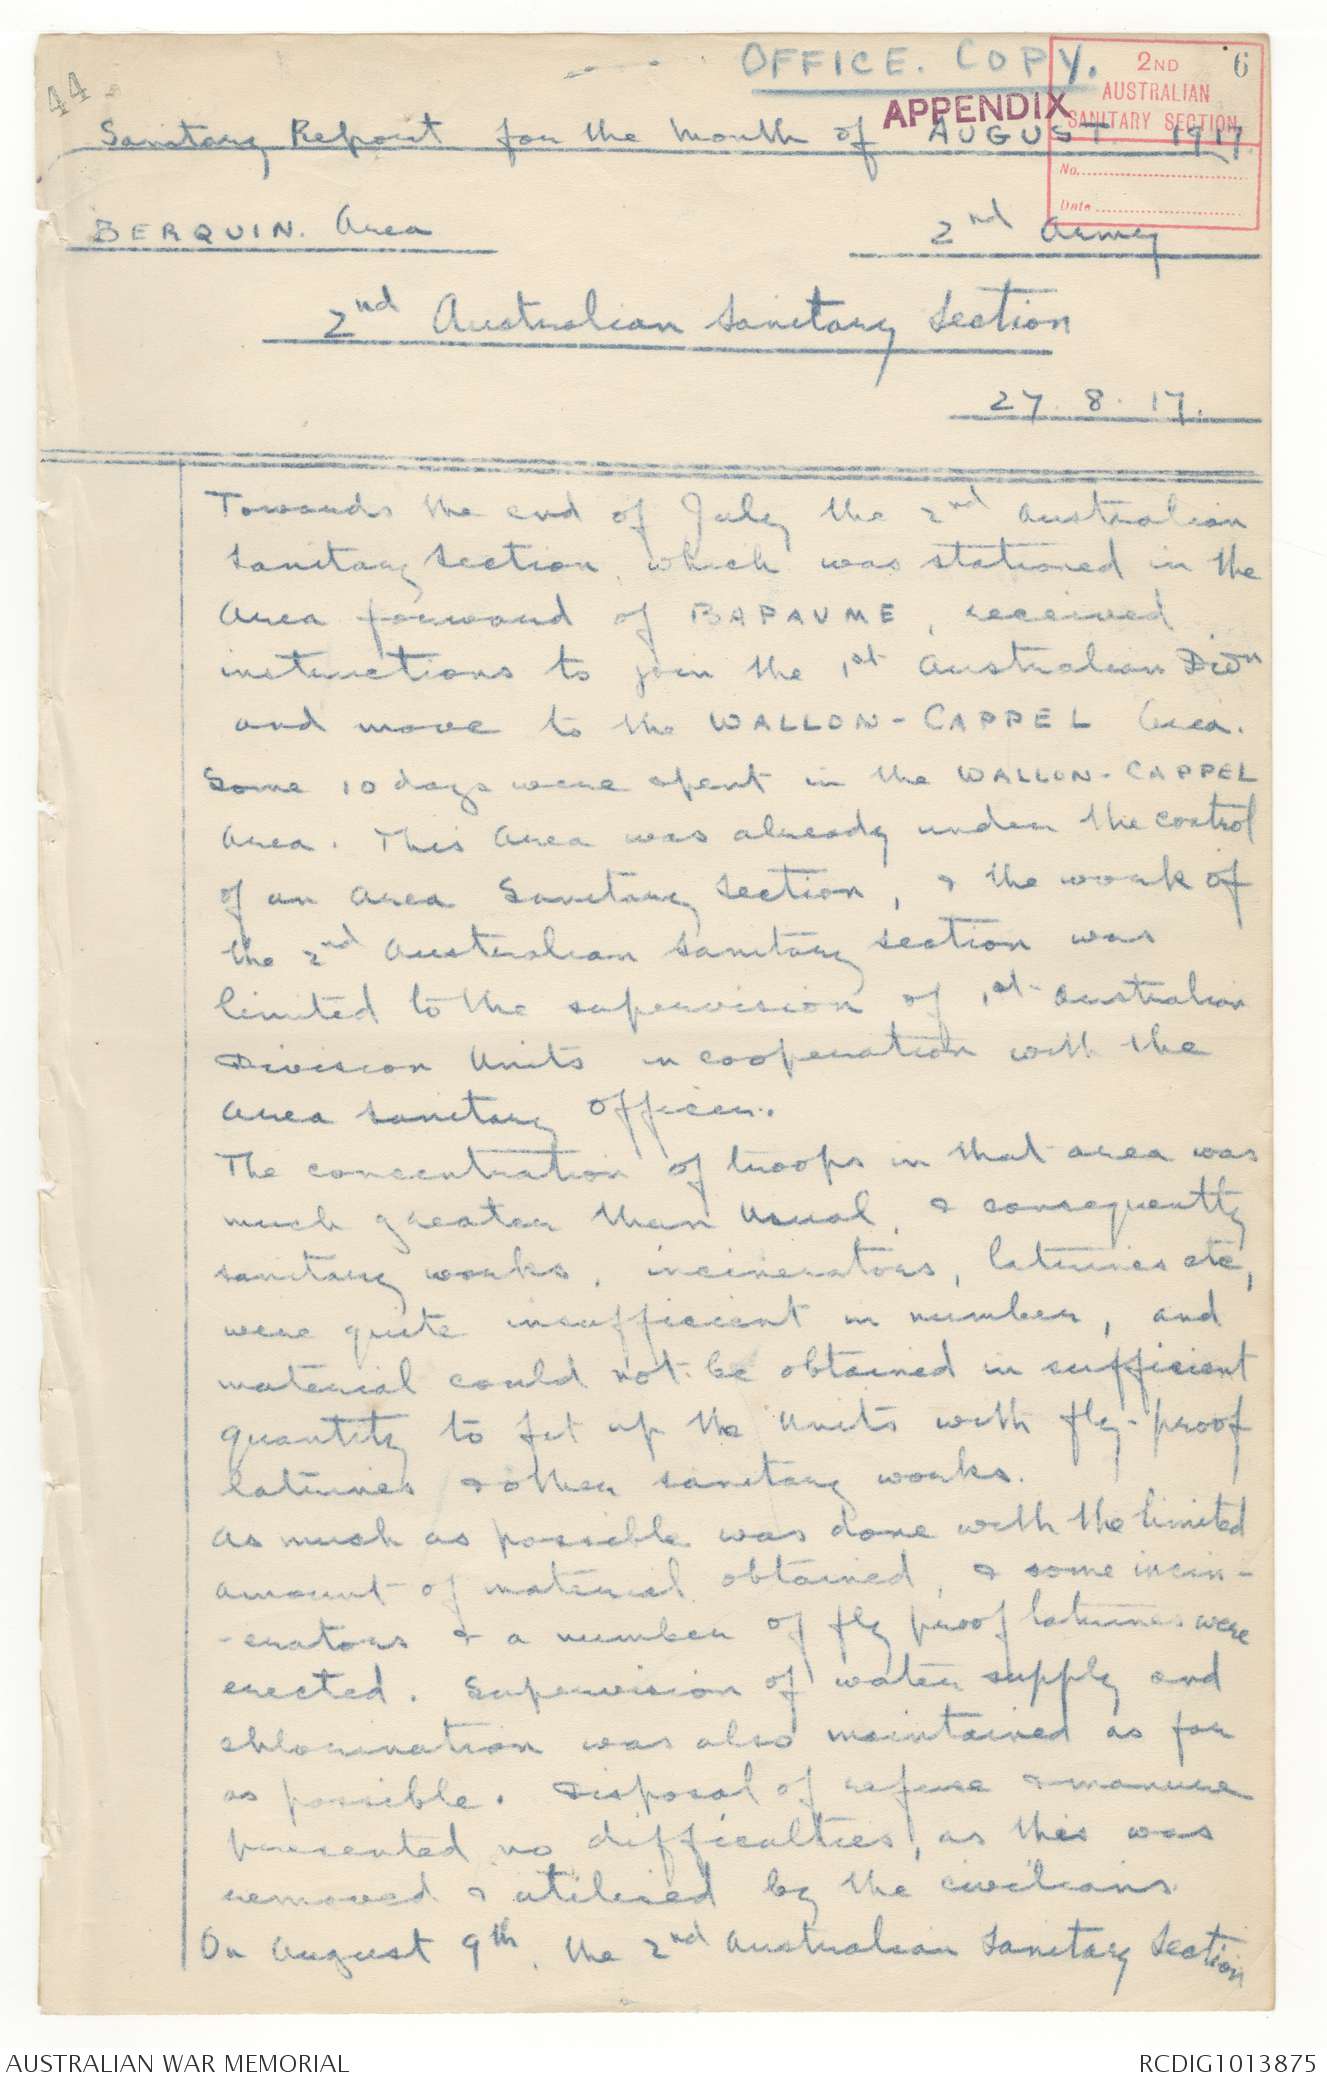 44
OFFICE. COPY.
6
2ND
AUSTRALIAN
SANITARY SECTION
No.
Date
APPENDIX
Sanitary Report for the Month of AUGUST 1917
BERQUIN. Area
2nd Army
2nd Australian Sanitary Section
27. 8. 17.
Towards the end of July the 2nd Australian
Sanitary Section, which was stationed in the
Area forward of BAPAUME, received
instructions to join the 1st Australian Divn
and move to the WALLON-CAPPEL Area.
Some 10 days were spent in the WALLON-CAPPEL
Area. This Area was already under the control
of an Area Sanitary Section, & the work of
the 2nd Australian Sanitary Section was
limited to the supervision of 1st Australian
Division Units in cooperation with the
Area Sanitary Officer.
The concentration of troops in that area was
much greater than usual, & consequently
sanitary works, incinerators, latrines etc,
were quite insufficient in number, and
material could not be obtained in sufficient
quantity to fit up the Units with fly-proof
latrines & other sanitary works.
As much as possible was done with the limited
amount of material obtained, & some incin-
-erators & a number of fly proof latrines were
erected. Supervision of water supply and
chlorination was also maintained as far
as possible. Disposal of refuse & manure
presented no difficulties, as this was
removed & utilised by the civilians.
On August 9th, the 2nd Australian Sanitary Section
AUSTRALIAN WAR MEMORIAL
RCDIG1013875